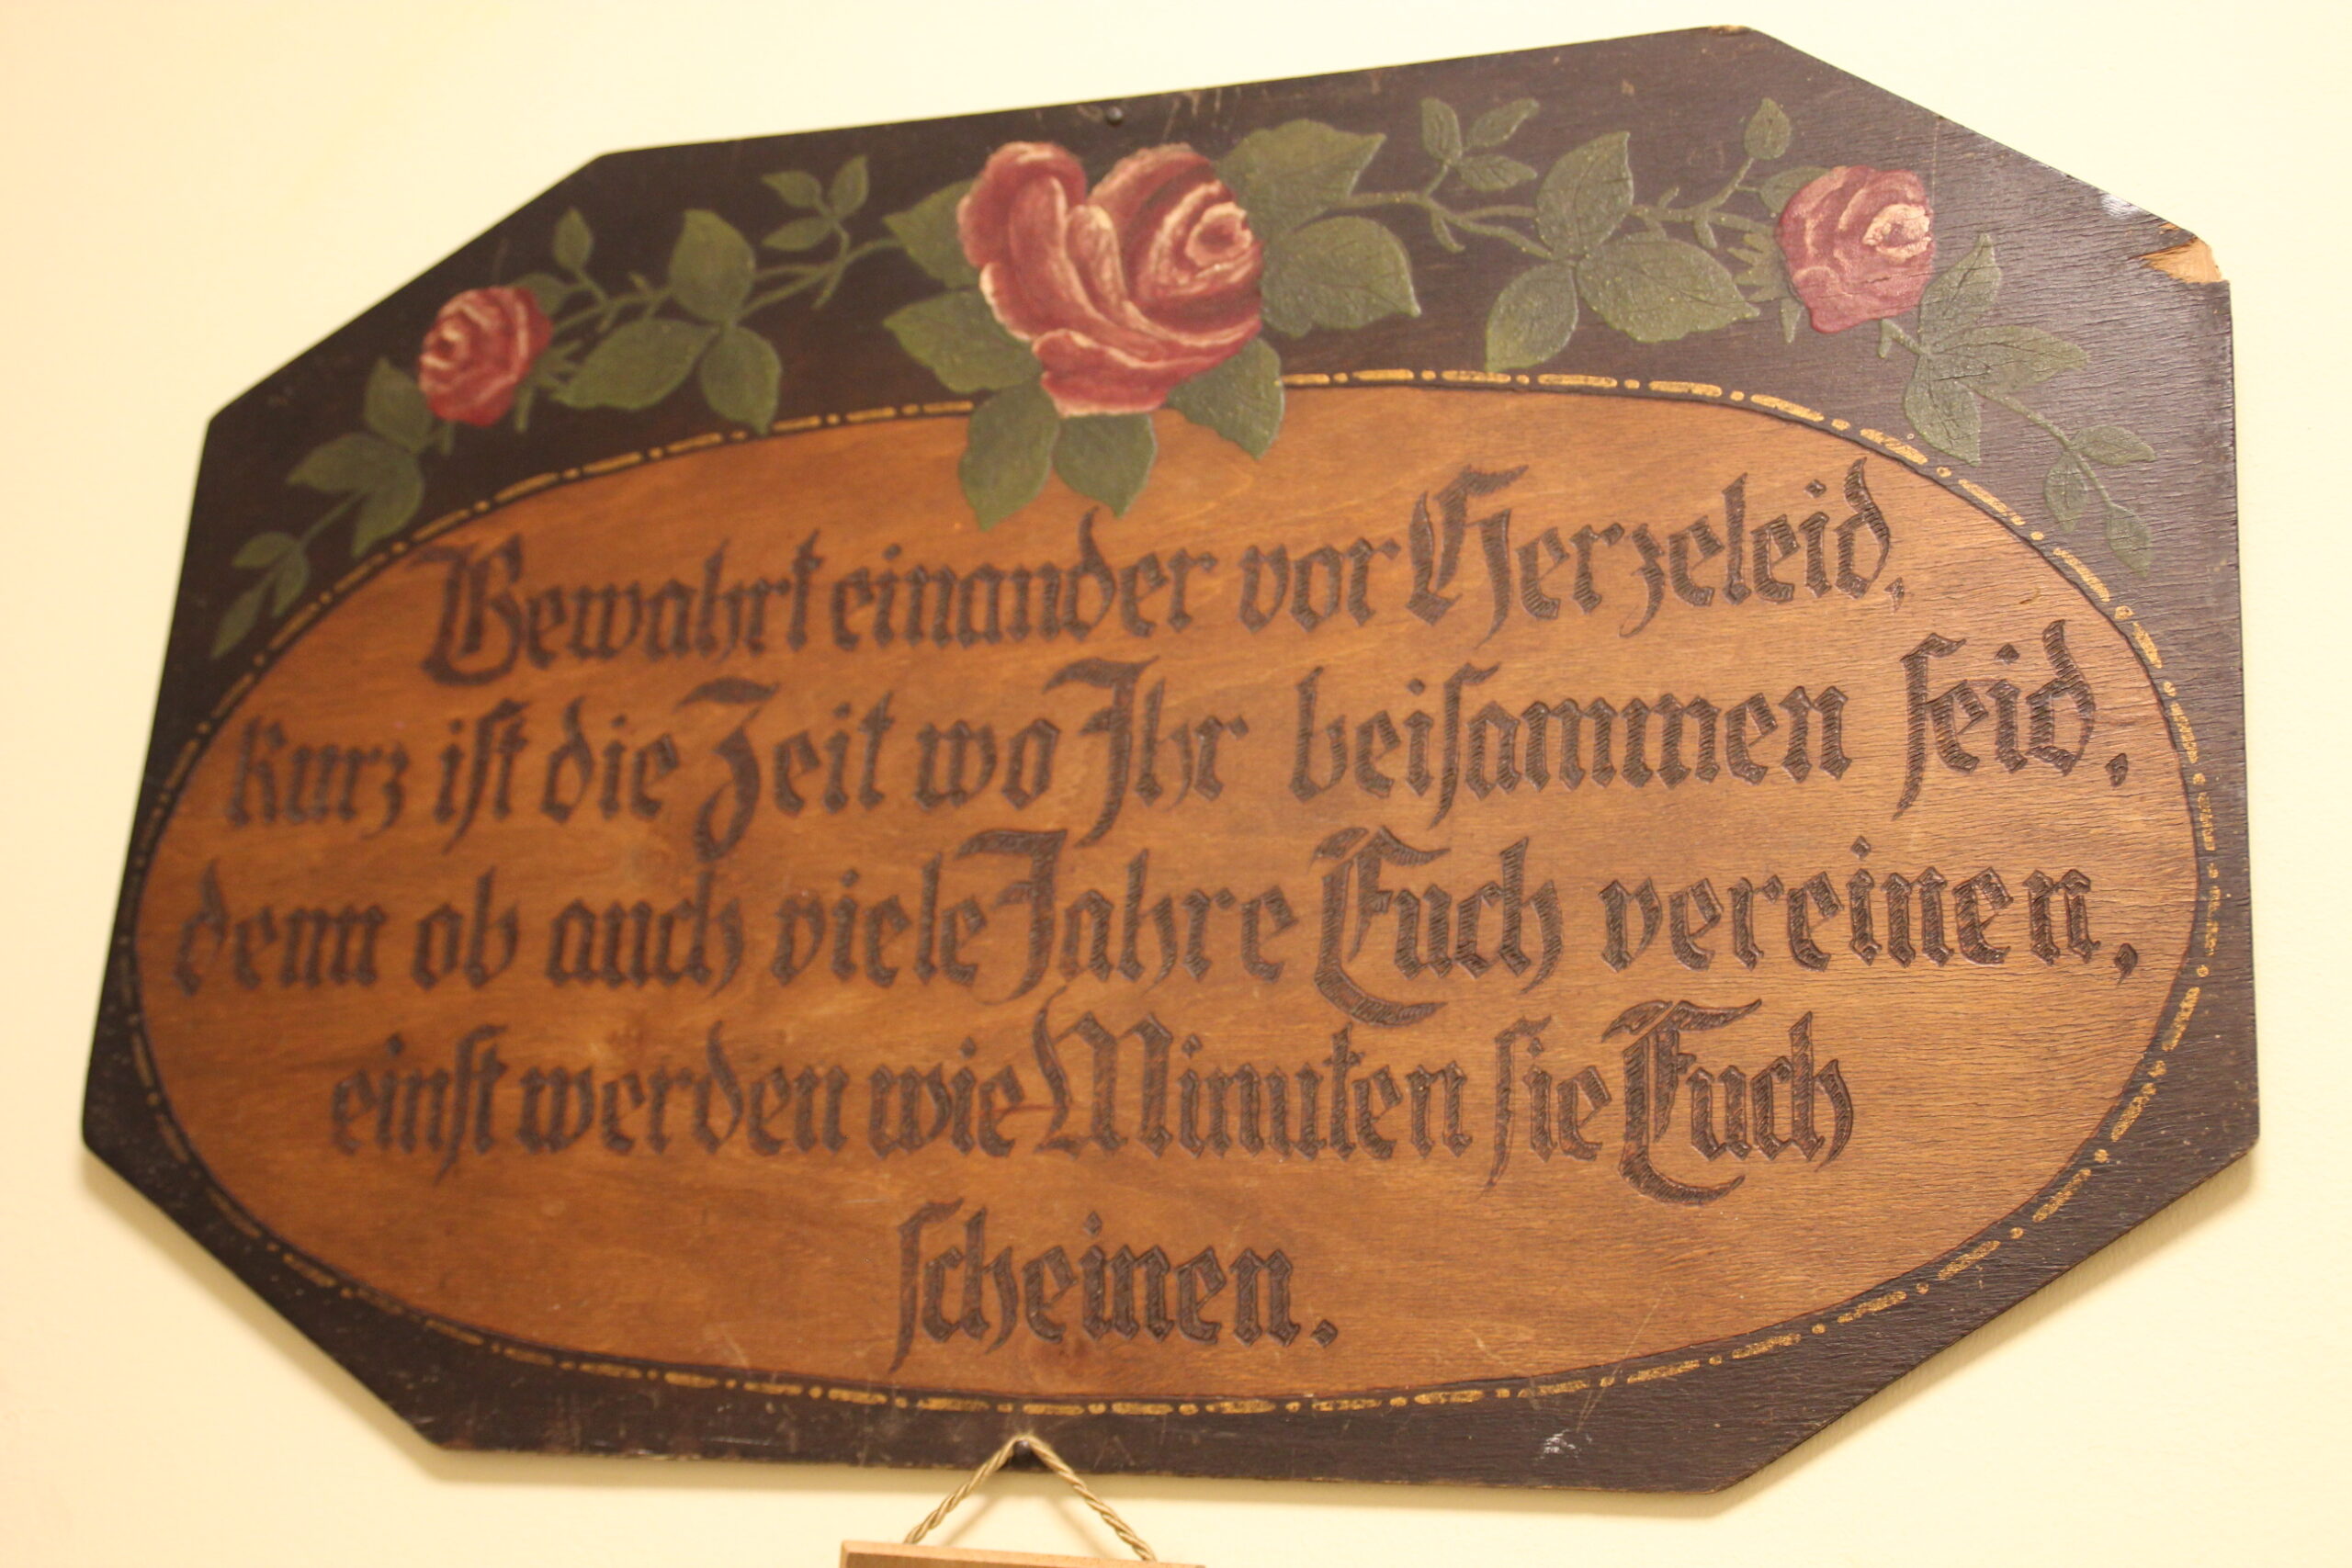 Bewahrt einander vor Herzeleid,
kurz iſt die Zeit wo Ihr beiſammen ſeid,
denn ob auch viele Jahre Euch vereinen,
einſt werden wie Minuten ſie Euch
ſcheinen.